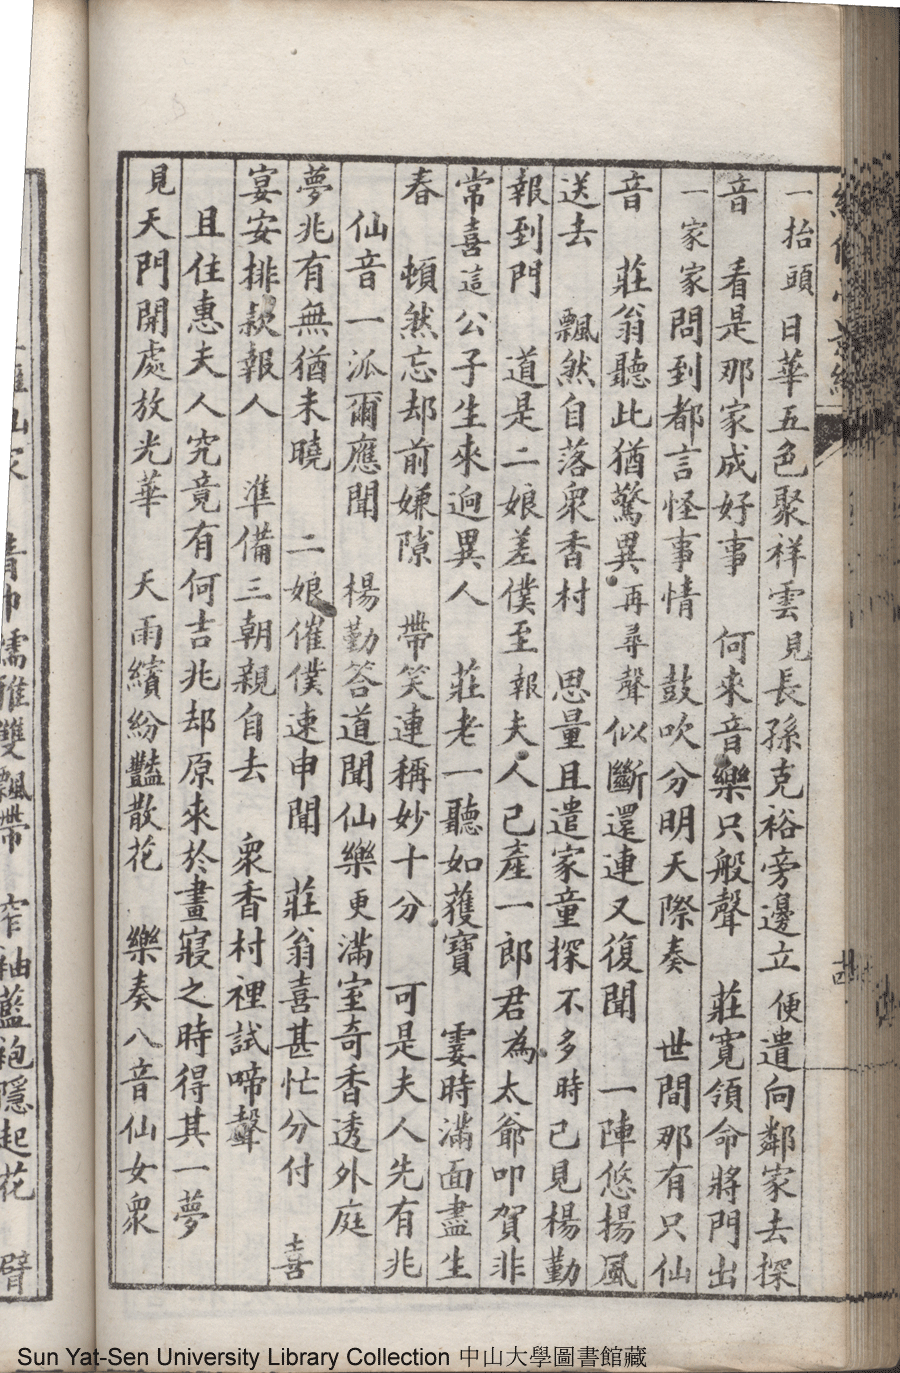 一抬頭 日華五色聚祥雲 見長孫克裕旁邊立 便遣向鄰家去探
音 看是那家成好事 何來音樂只般聲 莊寬領命將門出
一家家問到都言怪事情 鼓吹分明天際奏 世間那有只仙
音 莊翁聽此猶驚異 再尋聲似斷還連又復聞 一陣悠揚風
送去 飄然自落衆香村 思量且遣家童探 不多時已見楊勤
報到門 道是二娘差僕至 報夫人已產一郎君 為太爺叩賀非
常喜 這公子生來迥異人 莊老一聽如獲寶 霎時滿面盡生
春 頓然忘却前嫌隙 帶笑連稱妙十分 可是夫人先有兆
仙音一派爾應聞 楊勤答道聞仙樂 更滿室奇香透外庭
夢兆有無猶未曉 二娘催僕速申聞 莊翁喜甚忙分付 喜
宴安排款報人 準備三朝親自去 衆香村裡試啼聲
且住惠夫人究竟有何吉兆却原來於晝寢之時得其一夢
見天門開處放光華 天雨繽紛豔散花 樂奏八音仙女衆
儒雅雙飄帶 窄袖藍袍隱起花 臂
Sun Yat-Sen University Library Collection 中山大學圖書館藏